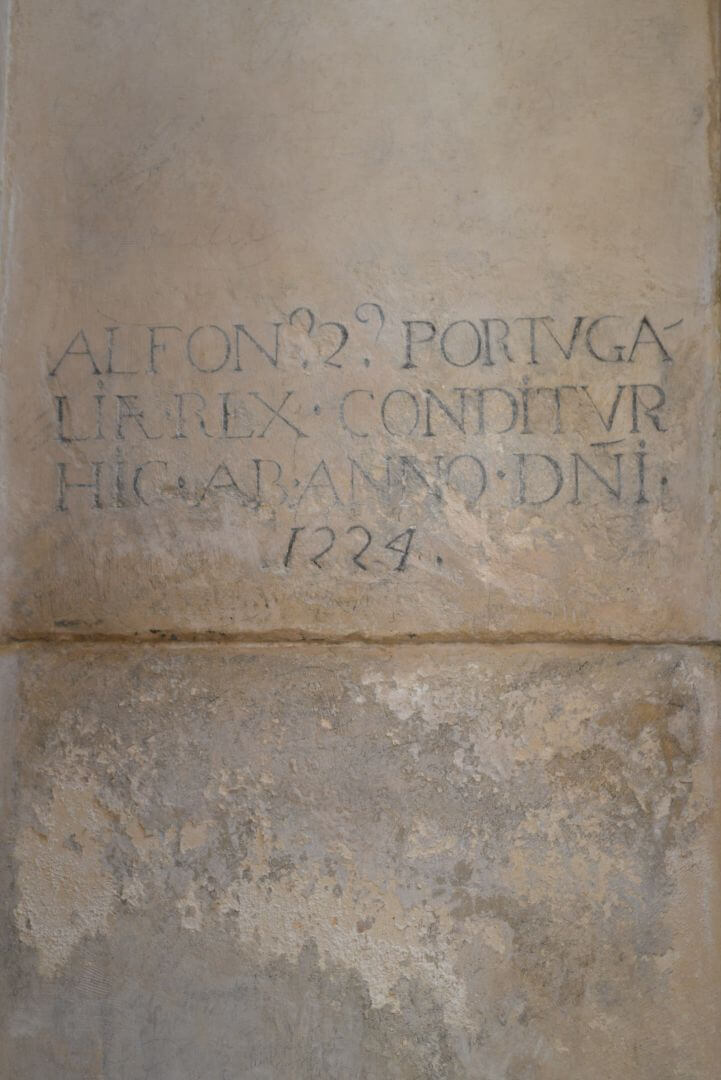 ALFON⁹. 2⁹. PORTVGA
LIÆ·REX·CONDITVR
HIC·AB·ANNO·DÑI·
1224.